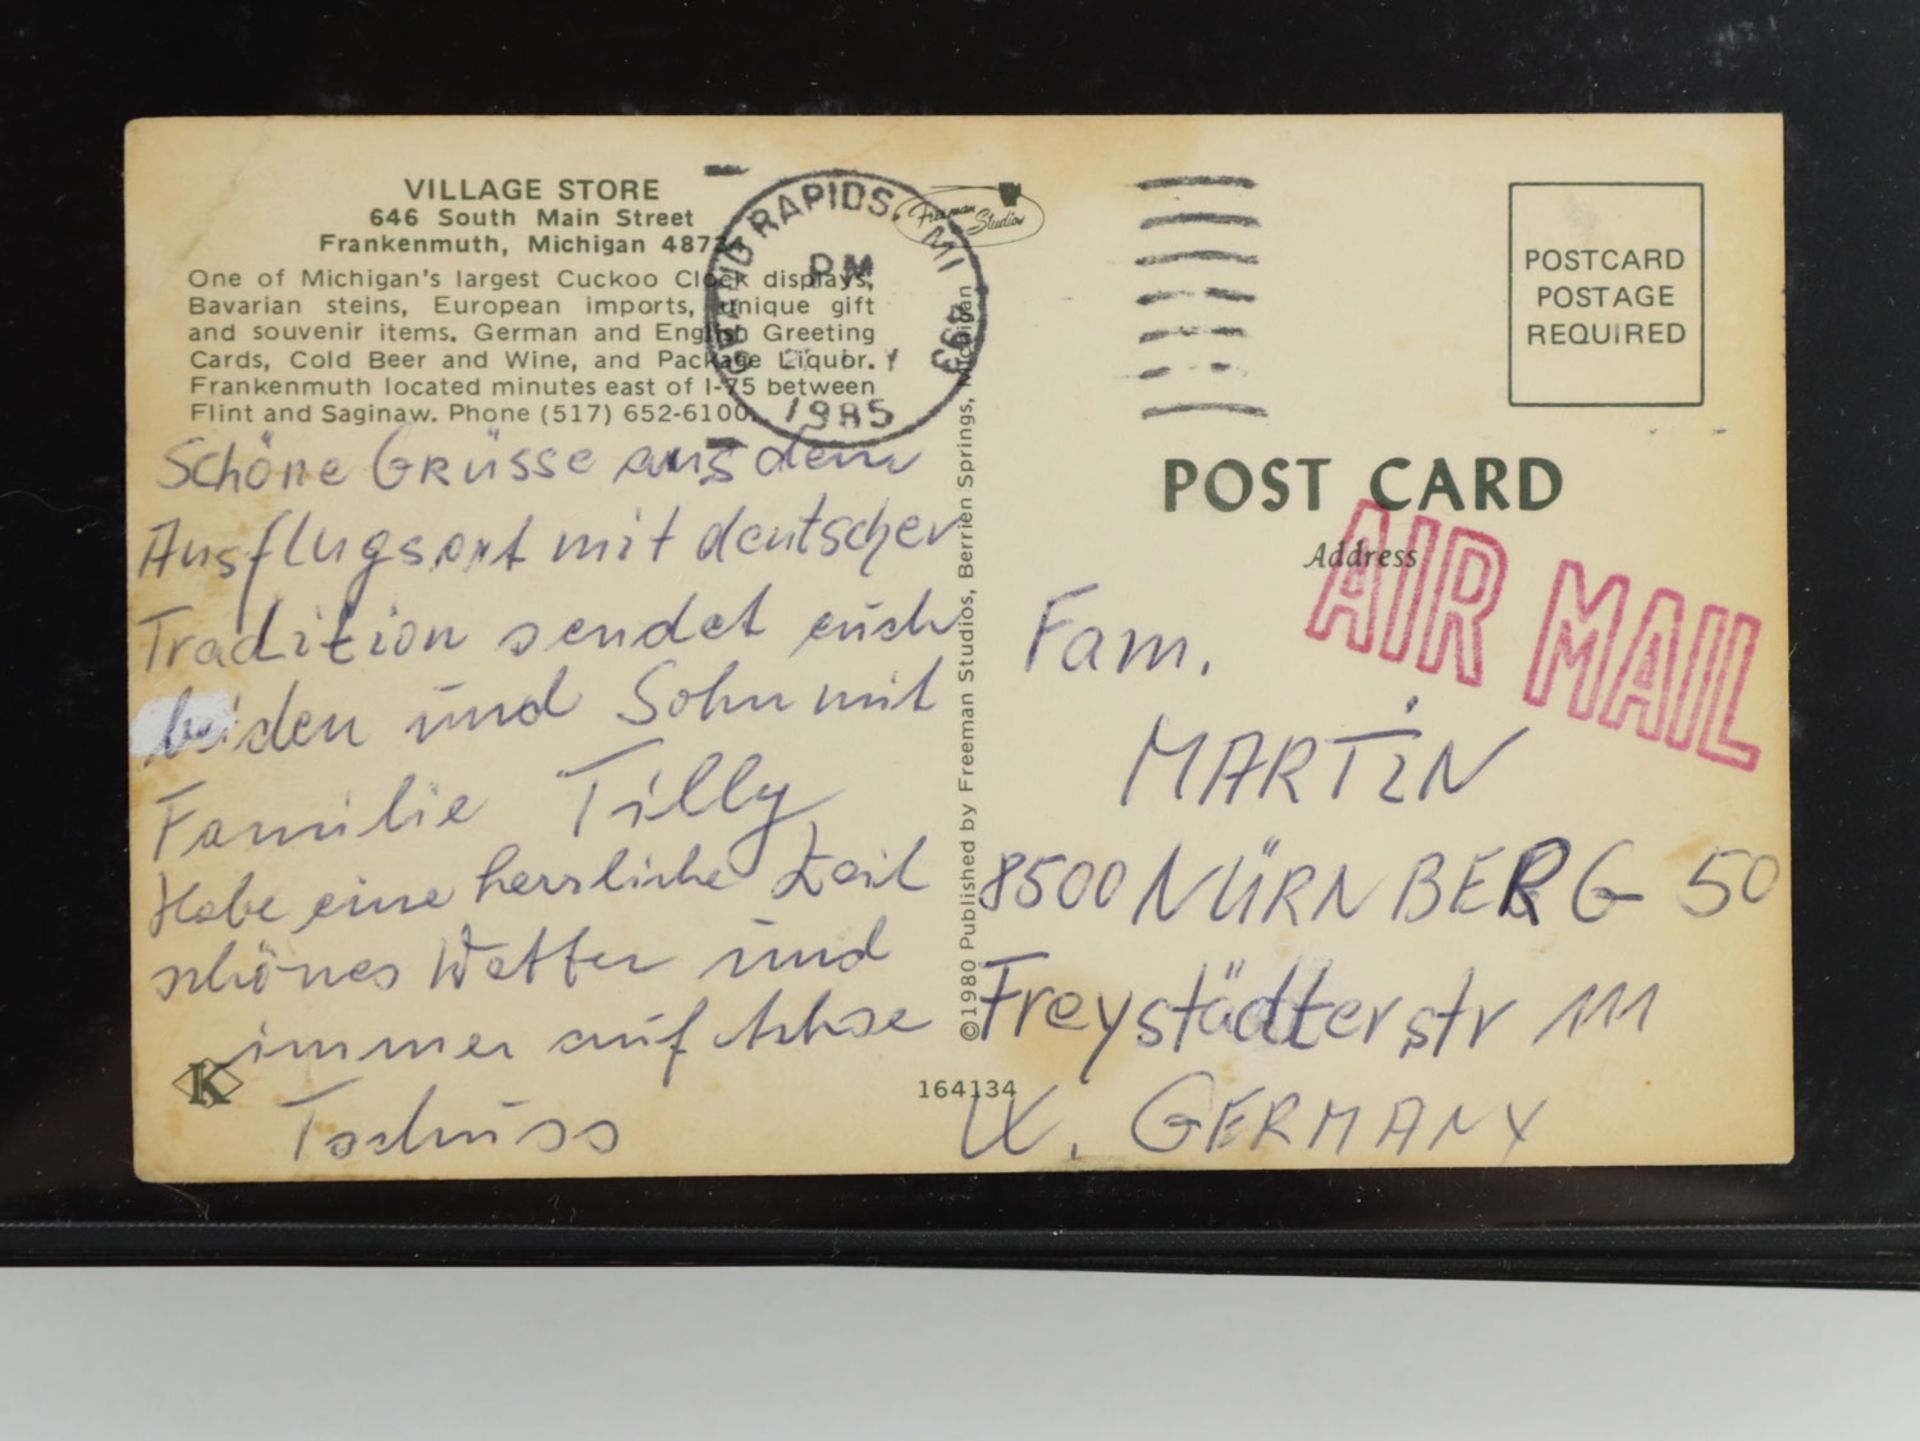 VILLAGE STORE
646 South Main Street
Frankenmuth, Michigan 48734
One of Michigan's largest Cuckoo Clock displays,
Bavarian steins, European imports, unique gift
and souvenir items. German and English Greeting
Cards, Cold Beer and Wine, and Package Liquor.
Frankenmuth located minutes east of I-75 between
Flint and Saginaw. Phone (517) 652-6100.
Schöne Grüsse aus dem
Ausflugsort mit deutscher
Tradition sendet euch
beiden und Sohn mit
Familie Tilly
Habe eine herrliche Zeit
schönes Wetter und
immer auf Achse
Tschüss
K
GRAND RAPIDS, MI
PM
1985
Freeman Studios
©1980 Published by Freeman Studios, Berrien Springs, Michigan
164134
POSTCARD
POSTAGE
REQUIRED
POST CARD
Address
AIR MAIL
Fam.
MARTIN
8500 NÜRNBERG 50
Freystädterstr 111
W. GERMANY